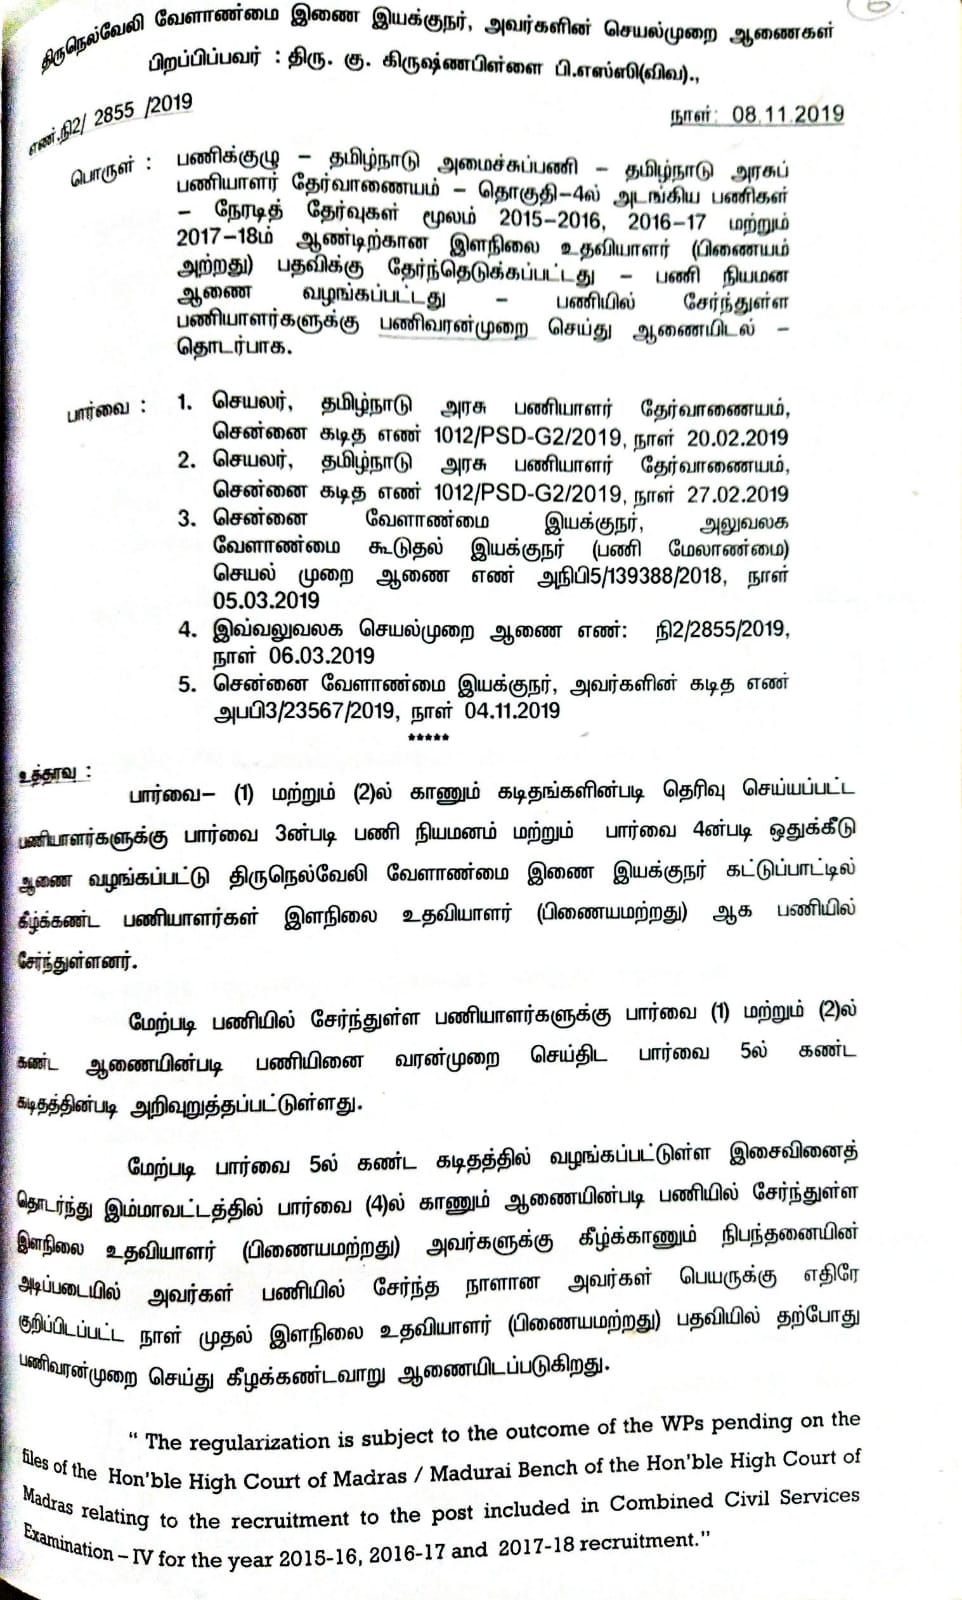 திருநெல்வேலி வேளாண்மை இணை இயக்குநர், அவர்களின் செயல்முறை ஆணைகள்
பிறப்பிப்பவர் : திரு. கு. கிருஷ்ணபிள்ளை பி.எஸ்ஸி(விவ).,
எண்.நி2/ 2855 /2019
நாள்: 08.11.2019
பொருள் : பணிக்குழு – தமிழ்நாடு அமைச்சுப்பணி – தமிழ்நாடு அரசுப்
பணியாளர் தேர்வாணையம் – தொகுதி-4ல் அடங்கிய பணிகள்
– நேரடித் தேர்வுகள் மூலம் 2015-2016, 2016-17 மற்றும்
2017-18ம் ஆண்டிற்கான இளநிலை உதவியாளர் (பிணையம்
அற்றது) பதவிக்கு தேர்ந்தெடுக்கப்பட்டது – பணி நியமன
ஆணை வழங்கப்பட்டது – பணியில் சேர்ந்துள்ள
பணியாளர்களுக்கு பணிவரன்முறை செய்து ஆணையிடல் –
தொடர்பாக.
பார்வை : 1. செயலர், தமிழ்நாடு அரசு பணியாளர் தேர்வாணையம்,
சென்னை கடித எண் 1012/PSD-G2/2019, நாள் 20.02.2019
2. செயலர், தமிழ்நாடு அரசு பணியாளர் தேர்வாணையம்,
சென்னை கடித எண் 1012/PSD-G2/2019, நாள் 27.02.2019
3. சென்னை வேளாண்மை இயக்குநர், அலுவலக
வேளாண்மை கூடுதல் இயக்குநர் (பணி மேலாண்மை)
செயல் முறை ஆணை எண் அநிபி5/139388/2018, நாள்
05.03.2019
4. இவ்வலுவலக செயல்முறை ஆணை எண்: நி2/2855/2019,
நாள் 06.03.2019
5. சென்னை வேளாண்மை இயக்குநர், அவர்களின் கடித எண்
அபபி3/23567/2019, நாள் 04.11.2019
*****
உத்தரவு :
பார்வை– (1) மற்றும் (2)ல் காணும் கடிதங்களின்படி தெரிவு செய்யப்பட்ட
பணியாளர்களுக்கு பார்வை 3ன்படி பணி நியமனம் மற்றும் பார்வை 4ன்படி ஒதுக்கீடு
ஆணை வழங்கப்பட்டு திருநெல்வேலி வேளாண்மை இணை இயக்குநர் கட்டுப்பாட்டில்
கீழ்க்கண்ட பணியாளர்கள் இளநிலை உதவியாளர் (பிணையமற்றது) ஆக பணியில்
சேர்ந்துள்ளனர்.
மேற்படி பணியில் சேர்ந்துள்ள பணியாளர்களுக்கு பார்வை (1) மற்றும் (2)ல்
கண்ட ஆணையின்படி பணியினை வரன்முறை செய்திட பார்வை 5ல் கண்ட
கடிதத்தின்படி அறிவுறுத்தப்பட்டுள்ளது.
மேற்படி பார்வை 5ல் கண்ட கடிதத்தில் வழங்கப்பட்டுள்ள இசைவினைத்
தொடர்ந்து இம்மாவட்டத்தில் பார்வை (4)ல் காணும் ஆணையின்படி பணியில் சேர்ந்துள்ள
இளநிலை உதவியாளர் (பிணையமற்றது) அவர்களுக்கு கீழ்க்காணும் நிபந்தனையின்
அடிப்படையில் அவர்கள் பணியில் சேர்ந்த நாளான அவர்கள் பெயருக்கு எதிரே
குறிப்பிடப்பட்ட நாள் முதல் இளநிலை உதவியாளர் (பிணையமற்றது) பதவியில் தற்போது
பணிவரன்முறை செய்து கீழக்கண்டவாறு ஆணையிடப்படுகிறது.
“ The regularization is subject to the outcome of the WPs pending on the
files of the Hon'ble High Court of Madras / Madurai Bench of the Hon'ble High Court of
Madras relating to the recruitment to the post included in Combined Civil Services
Examination – IV for the year 2015-16, 2016-17 and 2017-18 recruitment.”